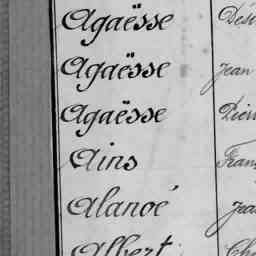 Agaësse Dési
Agaësse Jean
Agaësse Pierr
Ains Fran
Alanoé Jea
Albert Cha